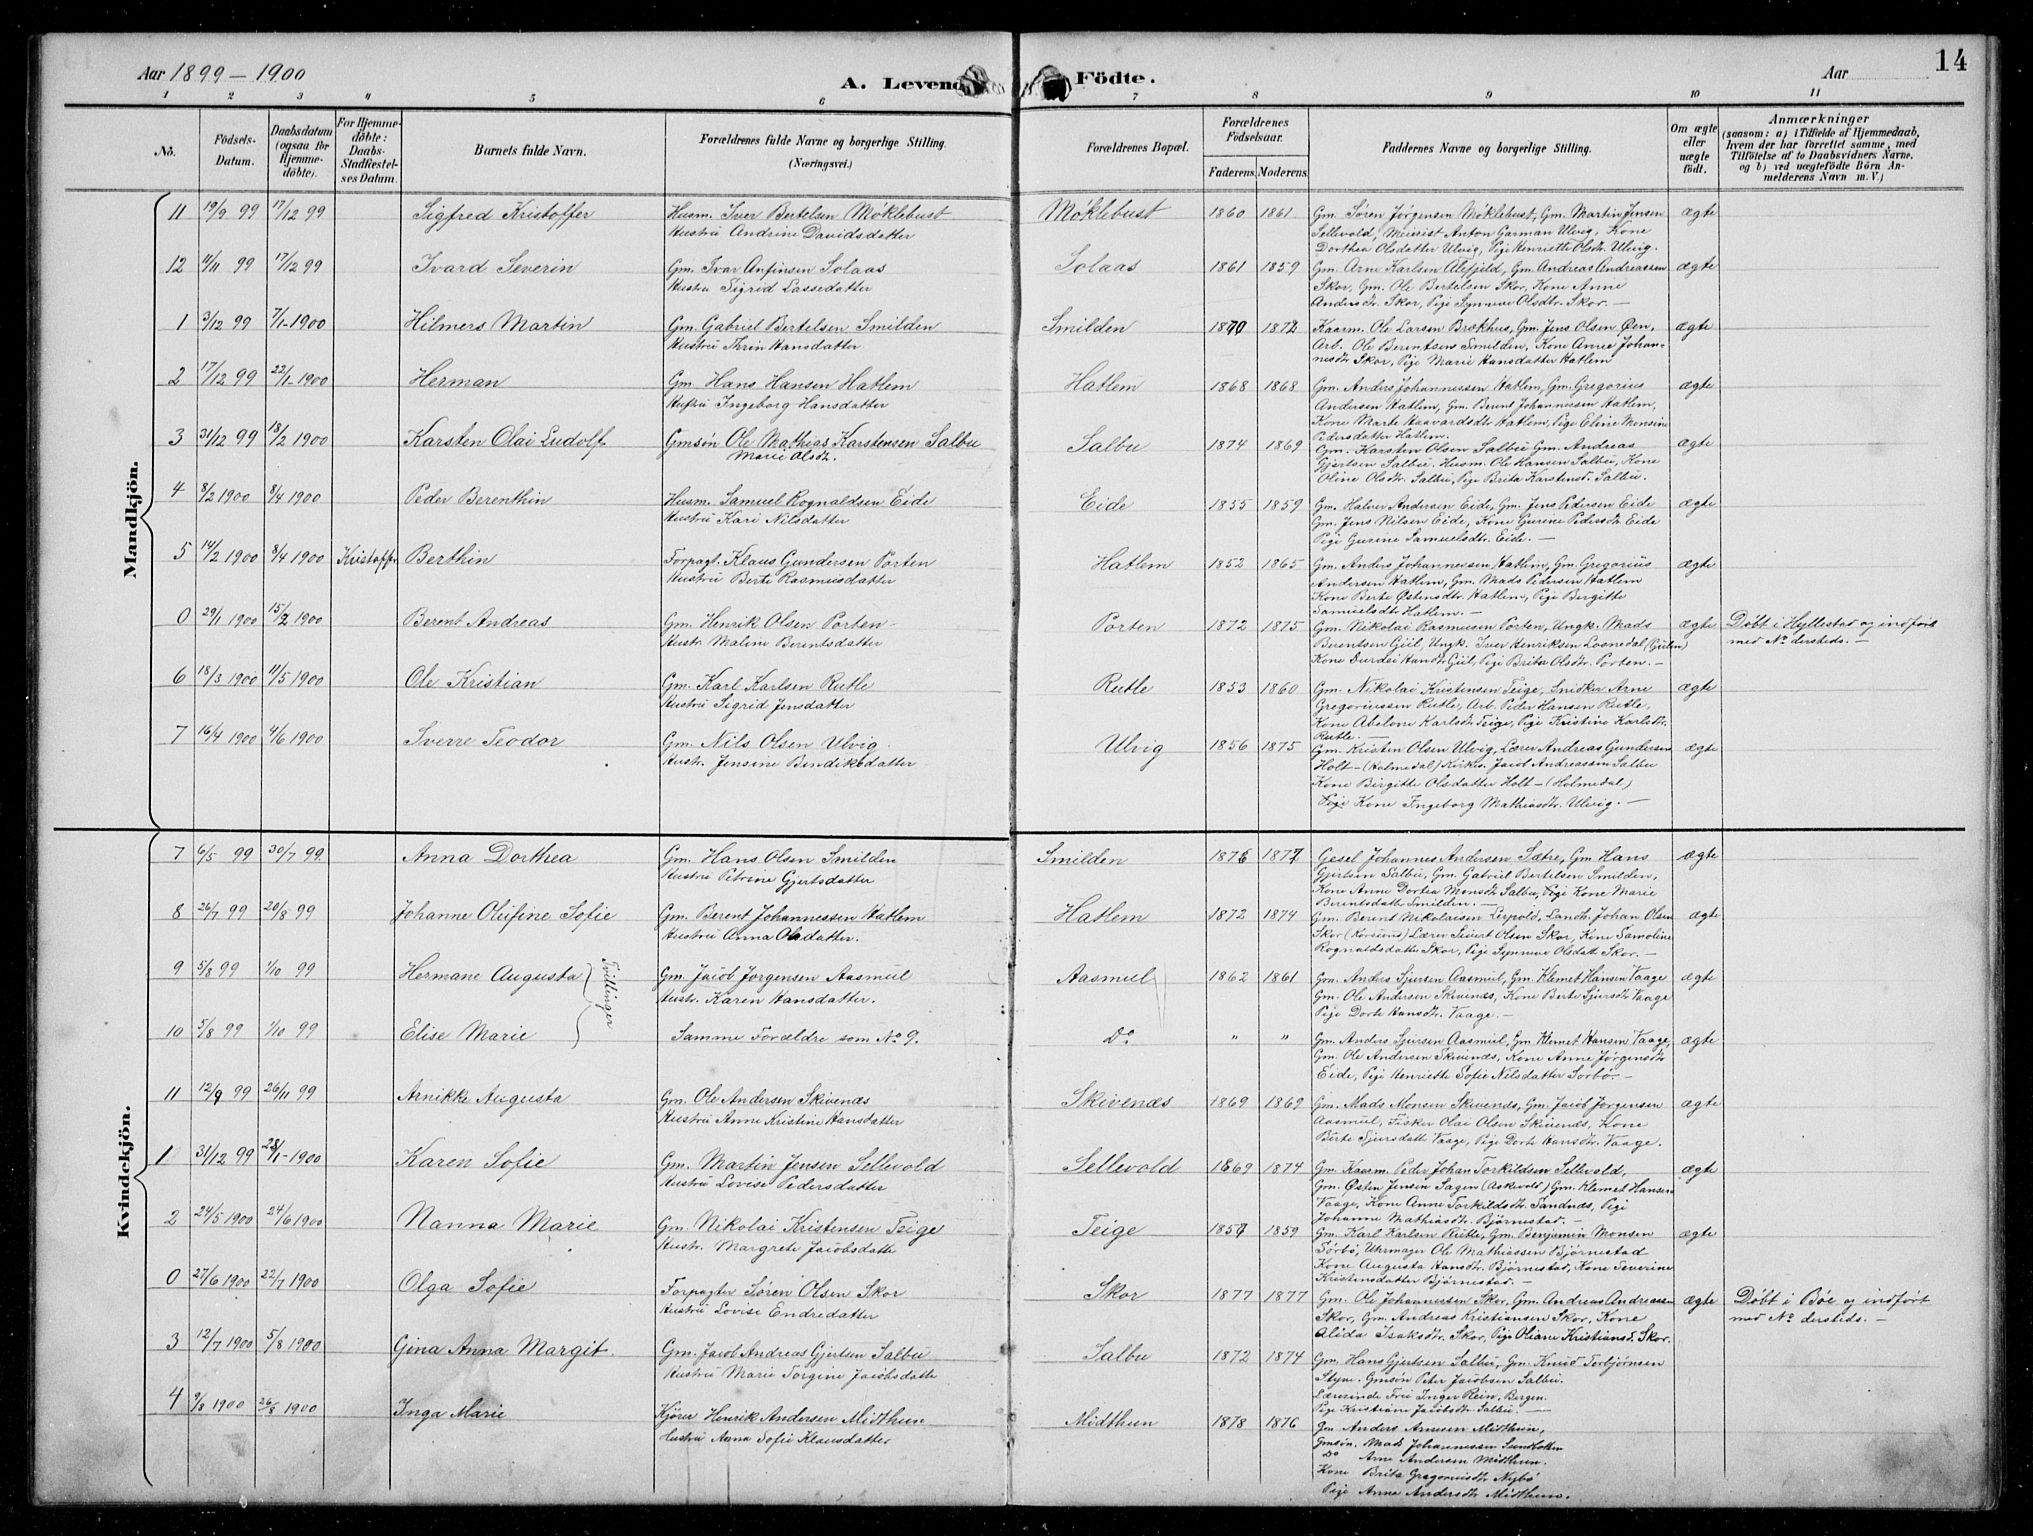 Aar 1899–1900
A. Levende Födte.
Aar
14
1 2 3 4 5 6 7 8 9 10 11
No.
Födsels-Datum.
Daabsdatum (ogsaa for Hjemme-döbte).
For Hjemme-döbte: Daabs-Stadfæstelses Datum.
Barnets fulde Navn.
Forældrenes fulde Navne og borgerlige Stilling.
(Næringsvei.)
Forældrenes Bopæl.
Forældrenes Födselsaar.
Faderens. Moderens.
Faddernes Navne og borgerlige Stilling.
Om ægte eller uægte födt.
Anmærkninger
(saasom: a) i Tilfælde af Hjemmedaab, hvem der har forrettet samme, med Tilföielse af to Daabsvidners Navne, og b) ved uægtefödte Börn Anmelderens Navn m. V.)
Mandkjön.
11 19/9 99 17/12 99 Sigfred Kristoffer Husm. Iver Bertelsen Møklebust Møklebust 1860 1861 Gm. Søren Jørgensen Møklebust, Gm. Martin Jensen ægte
Hustru Andrine Davidsdatter Sellevold, Anton Garman Ulvig, Kone
Dorthea Olsdatter Ulvig, Pige Henriette Olsdtr. Ulvig.
12 11/11 99 17/12 99 Ivard Severin Gm. Ivar Anfinsen Solaas Solaas 1861 1859 Gm. Arne Karlsen Alefjeld, Gm. Andreas Andreassen ægte
Hustru Sigrid Lassedatter Skor, Gm. Ole Bertelsen Skor, Kone Anne
Andersdtr. Skor, Pige Synneve Olsdtr. Skor. —
1 3/12 99 7/1-1900 Hilmers Martin Gm. Gabriel Bertelsen Smilden Smilden 1870 1872 Kaarm. Ole Larsen Brækhus, Gm. Jens Olsen Øen, ægte
Hustru Thrin Hansdatter Arb. Ole Berentsen Smilden, Kone Anne Johan-
nesdtr Skor, Pige Marie Hansdatter Hatlem
2 17/12 99 22/1-1900 Herman Gm. Hans Hansen Hatlem Hatlem 1868 1868 Gm. Anders Johannessen Hatlem, Gm. Gregorius ægte
Hustru Ingeborg Hansdatter Andersen Hatlem, Gm. Berent Johannessen Hatlem,
Kone Marte Haavardsdtr Hatlem, Pige Eline Monsine
Pedersdatter Hatlem.
3 31/12 99 18/2 1900 Karsten Olai Ludolf Gmsøn Ole Mathias Karstensen Salbu Salbu 1874 1869 Gm. Karsten Olsen Salbu Gm. Andreas ægte
Marie Olsdtr. Gjertsen Salbu. Husm. Ole Hansen Salbu, Kone
Oline Olsdtr. Salbu, Pige Brita Karstensd. Salbu.
4 8/2 1900 8/4 1900 Peder Berenthin Husm. Samuel Rognaldsen Eide Eide 1855 1859 Gm. Halver Andersen Eide, Gm. Jens Pedersen Eide ægte
Hustru Kari Nilsdatter Gm. Jens Nilsen Eide, Kone Gurine Pedersdtr Eide
Pige Gurine Samuelsdtr. Eide. —
5 14/2 1900 8/4 1900 Kristoffer Berthin Forpagt. Klaus Gundersen Porten Hatlem 1852 1865 Gm. Anders Johannessen Hatlem, Gm. Gregorius ægte
Hustru Berte Rasmusdatter Andersen Hatlem, Gm. Mads Pedersen Hatlem
Kone Berte Østensdtr. Hatlem, Pige Birgitte
Samuelsdtr Hatlem. —
0 29/1 1900 15/2 1900 Berent Andreas Gm. Henrik Olsen Porten Porten 1872 1875 Gm. Nikolai Rasmussen Porten, Ungk. Mads ægte Døbt i Hyllestad og indført
Hustr. Maline Berentsdatter Berentsen Giil, Ungk. Iver Henriksen Losnedal (Gulen) med No dersteds. —
Kone Durdei Hansdtr Giil, Pige Brita Olsdtr. Porten. —
6 18/3 1900 11/5 1900 Ole Kristian Gm. Karl Karlsen Rutle Rutle 1853 1860 Gm. Nikolai Kristensen Teige, Snidker Arne ægte
Hustru Sigrid Jensdatter Gregoriussen Rutle, Arb. Peder Hansen Rutle,
Kone Abelone Karlsdtr Teige, Pige Kristine Karlsdtr.
Rutle. —
7 16/4 1900 4/6 1900 Sverre Teodor Gm. Nils Olsen Ulvig Ulvig 1856 1875 Gm. Kristen Olsen Ulvig, Lærer Andreas Gundersen ægte
Hustr. Jensine Bendiksdatter Holt – (Holmedal) Kirkes. Jacob Andreassen Salbu
Kone Birgitte Olsdatter Holt – (Holmedal)
Pige Kone Ingeborg Mathiasdtr. Ulvig. —
Kvindekjön.
7 6/5 99 30/7 99 Anna Dorthea Gm. Hans Olsen Smilden Smilden 1876 1877 Gesel Johannes Andersen Sætre, Gm. Hans ægte
Hustru Petrine Gjertsdatter Gjertsen Salbu, Gm. Gabriel Bertelsen Smilden,
Kone Anne Dortea Monsdtr Salbu, Pige Kone Marie
Berentsdatter Smilden. —
8 26/7 99 20/8 99 Johanne Olufine Sofie Gm. Berent Johannessen Hatlem Hatlem 1872 1874 Gm. Berent Nikolaisen Lerpold, Landh. Johan Olsen ægte
Hustru Anna Olsdatter. Skor (Korssund) Lærer Sivert Olsen Skor, Kone Samoline
Rognaldsdatter Skor, Pige Synneve Olsdatr Skor. —
9 5/8 99 1/10 99 Hermane Augusta Tvillinger Gm. Jacob Jørgensen Aasmul Aasmul 1862 1861 Gm. Anders Sjursen Aasmul, Gm. Klemet Hansen Vaage ægte
Hustr. Karen Hansdatter. Gm. Ole Andersen Skivenæs, Kone Berte Sjursdtr Vaage
Pige Dorte Hansdtr. Vaage. —
10 5/8 99 1/10 99 Elise Marie Samme Forældre som No 9. Do " " Gm. Anders Sjursen Aasmul, Gm. Klemet Hansen Vaage, ægte
Gm. Ole Andersen Skivenæs, Kone Anne Jørgensdtr
Eide, Pige Henriette Sofie Nilsdatter Sørbø. —
11 12/9 99 26/11 99 Arnikke Augusta Gm. Ole Andersen Skivenæs Skivenæs 1869 1869 Gm. Mads Monsen Skivenæs, Gm. Jacob Jørgensen ægte
Hustru Anne Kristine Hansdatter Aasmul, Fisker Olai Olsen Skivenæs, Kone
Berte Sjursdatter Vaage, Pige Dorte Hansdtr. Vaage.
1 31/12 99 28/1-1900 Karen Sofie Gm. Martin Jensen Sellevold Sellevold 1869 1874 Gm. Kaarm. Peder Johan Torkildsen Sellevold, ægte
Hustru Lovise Pedersdatter Gm. Østen Jensen Sagen (Askevold) Gm. Klemet Hansen
Vaage, Kone Anne Torkildsdtr. Sandnæs, Pige
Johanne Mathiasdtr. Bjørnestad. —
2 24/5 1900 24/6 1900 Nanna Marie Gm. Nikolai Kristensen Teige Teige 1857 1859 Gm. Karl Karlsen Rutle, Gm. Benjamin Monsen ægte
Hustr. Margrete Jacobsdatte Sørbø, Uhrmager Ole Mathiassen Bjørnestad
Kone Augusta Hansdtr. Bjørnestad, Kone Severine
Kristensdatter Bjørnestad. —
0 27/6 1900 22/7 1900 Olga Sofie Forpagter Søren Olsen Skor Skor 1877 1877 Gm. Ole Johannessen Skor, Gm. Andreas Andreassen ægte Døbt i Bøe og indført
Hustru Lovise Endredatter Skor, Gm. Andreas Kristiansen Skor, Kone med No dersteds. —
Alida Isaksdtr. Skor, Pige Oliane Kristiansd. Skor.
3 12/7 1900 5/8 1900 Gina Anna Margit. Gm. Jacob Andreas Gjertsen Salbu Salbu 1872 1874 Gm. Hans Gjertsen Salbu, Gm. Knud Torbjørnsen
Hustru Marie Torgine Jacobsdatte Styve. Gmsøn Peter Jacobsen Salbu.
Lærerinde Frøi Inger Rein, Bergen.
Pige Kristiane Jacobsdtr Salbu. —
4 9/8 1900 26/8 1900 Inga Marie Kjører Henrik Andersen Midthun Midthun 1878 1876 Gm Anders Arnesen Midthun,
Hustru Anna Sofie Klausdatter Gmsøn. Mads Johannessen
Do Arne Andersen Midthun.
Kone Brita Gregoriusdtr Nybø
Pige Anne Andersdtr Midthun.